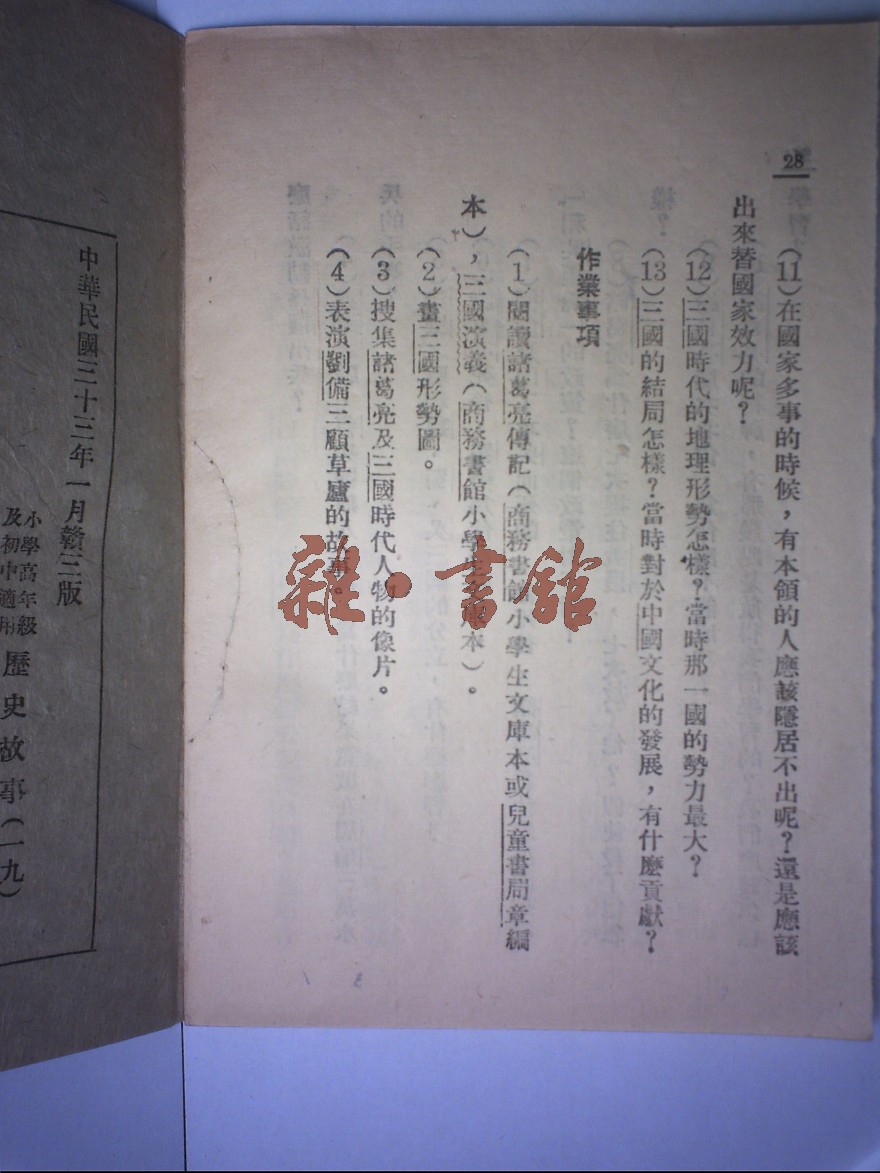 28
（11）在國家多事的時候，有本領的人應該隱居不出呢？還是應該
出來替國家效力呢？
（12）三國時代的地理形勢怎樣？當時那一國的勢力最大？
（13）三國的結局怎樣？當時對於中國文化的發展，有什麼貢獻？
作業事項
（1）閱讀諸葛亮傳記（商務書館小學生文庫本或兒童書局章編
本），三國演義（商務書館小學生文庫本）。
（2）畫三國形勢圖。
（3）搜集諸葛亮及三國時代人物的像片。
（4）表演劉備三顧草廬的故事。
雜·書館
中華民國三十三年一月贛三版
小學高年級
及初中適用
歷史故事（一九）